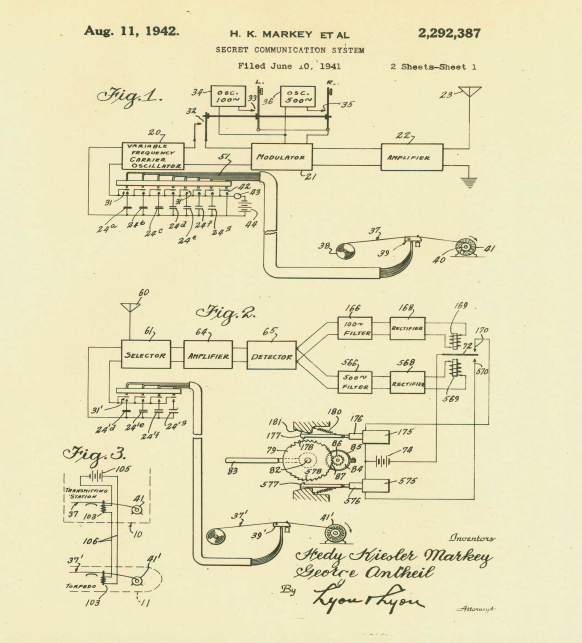 Aug. 11, 1942.
H. K. MARKEY ET AL
2,292,387
SECRET COMMUNICATION SYSTEM
Filed June 10, 1941
2 Sheets-Sheet 1
Fig. 1.
34
OSC.
100~
L.
33
36
OSC.
500~
R.
35
32
23
20
VARIABLE
FREQUENCY
CARRIER
OSCILLATOR
57
MODULATOR
21
22
AMPLIFIER
31
42
43
44
24a
24b
24c
24d
24e
24f
24g
37
38
39
40
41
60
Fig. 2.
61
SELECTOR
64
AMPLIFIER
65
DETECTOR
166
100~
FILTER
168
RECTIFIER
169
170
72
566
500~
FILTER
568
RECTIFIER
569
570
31'
24'd
24'e
24'f
24'g
181
180
176
177
175
79
178
86
85
74
83
82
578
87
84
577
576
575
Fig. 3.
105
TRANSMITTING
STATION
37
103
41
10
106
37'
41'
TORPEDO
103
11
37'
39'
41'
Inventors
Hedy Kiesler Markey
George Antheil
By
Lyon & Lyon
Attorneys